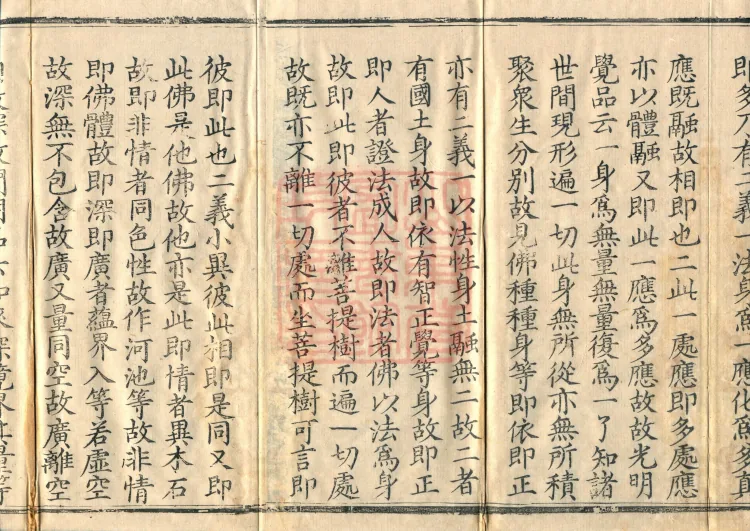 即多乃有二義一法身爲一應化爲多真
應既融故相即也二此一處應即多處應
亦以體融又即此一應爲多應故故光明
覺品云一身爲無量無量復爲一了知諸
世間現形遍一切此身無所從亦無所積
聚衆生分別故見佛種種身等即依即正
亦有二義一以法性身土融無二故二者
有國土身故即依有智正覺等身故即正
即人者證法成人故即法者佛以法爲身
故即此即彼者不離菩提樹而遍一切處
故既亦不離一切處而坐菩提樹可言即
彼即此也二義小異彼此相即是同又即
此佛是他佛故他亦是此即情者異木石
故即非情者同色性故作河池等故非情
即佛體故即深即廣者蘊界入等若虛空
故深無不包含故廣又量同空故廣離空